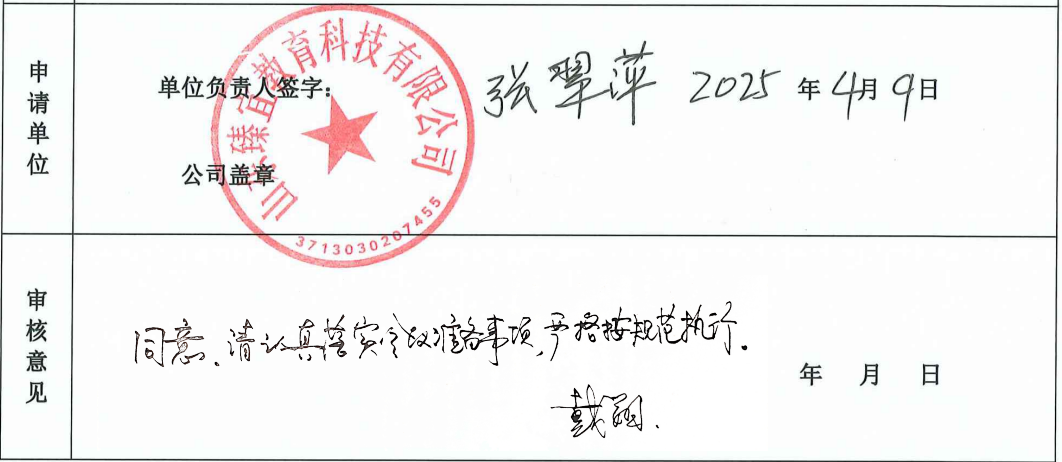 申请单位
单位负责人签字：张翠萍 2025年4月9日
公司盖章
山东臻宜教育科技有限公司
3713030207455
审核意见
同意，请认真落实会议准备事项，严格按规范执行。
戴翔.
年 月 日